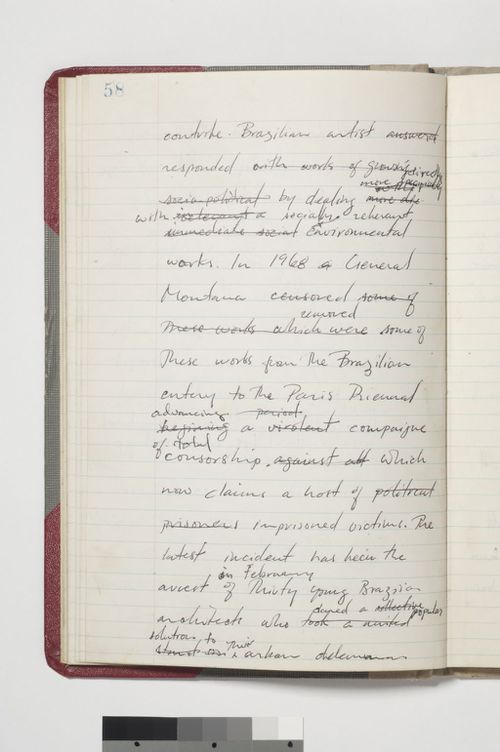 58
contrite. Brazilian artist answered
responded with works of growing directly
more specifically
socio-political by dealing more dir
with relevant a socially relevant
immediate social Environmental
works. In 1968 a General
Montana censored some of
removed
These works which were some of
These works from The Brazilian
entery to the Paris Biennal
advancing period
beginning a virolent compaigne
of total
consorship. against all which
now claims a host of political
prisoners imprisoned victims. The
latest incident has been the
in February
arrest of Thirty young Brazilian
architects who took a united
solutions to Their urban